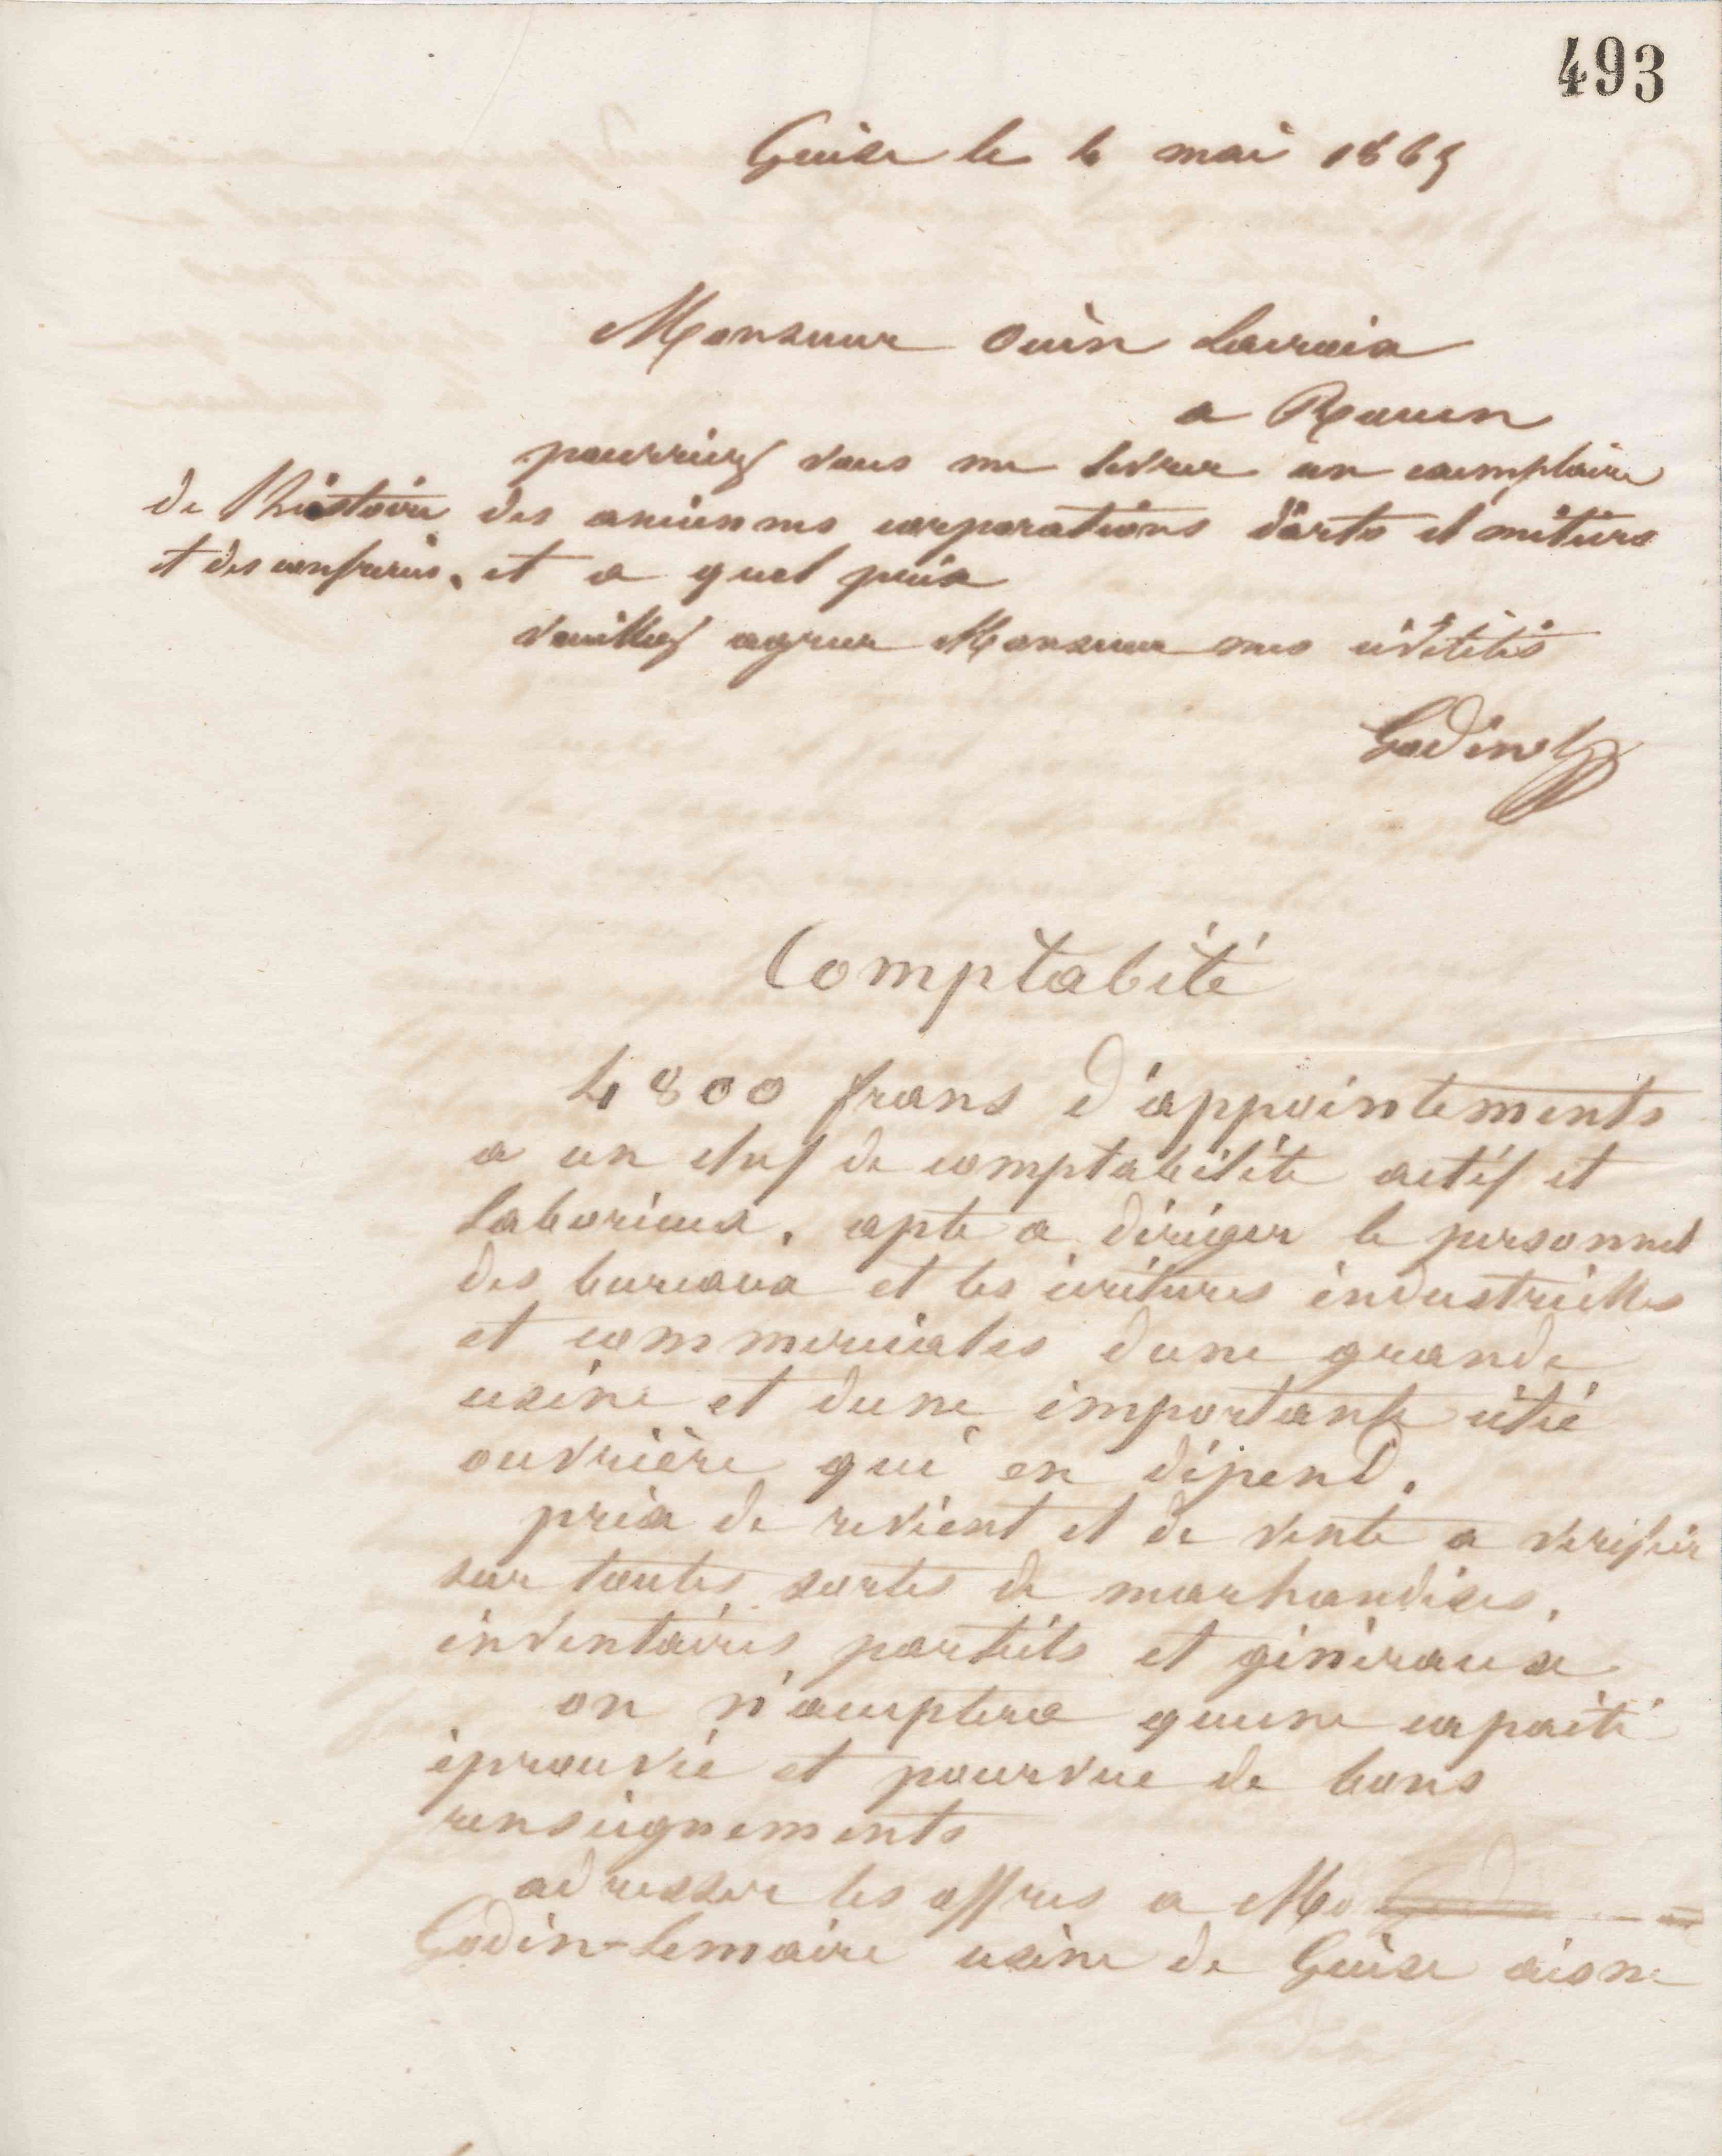 493
Guise le 4 mai 1865
Monsieur Ouin Lacroix
a Rouen
pourriez vous me livrer un exemplaire
de l'histoire des anciennes corporations d'arts et métiers
et des confreries. et a quel prix
Veuillez agreer Monsieur mes civilités
Godin
Comptabité
4800 frans d'appointements
a un chef de comptabilité actif et
laborieux. apte a diriger le personnel
des bureaux et les écritures industrielles
et commerciales dune grande
usine et dune importante cité
ouvrière qui en dépend.
prix de revient et de vente a verifier
sur toutes sortes de marchandises.
inventaires partiels et généraux
on n'acceptera quune capacité
éprouvée et pourvue de bons
renseignements
adresser les offres a Mr
Godin-Lemaire usine de Guise aisne